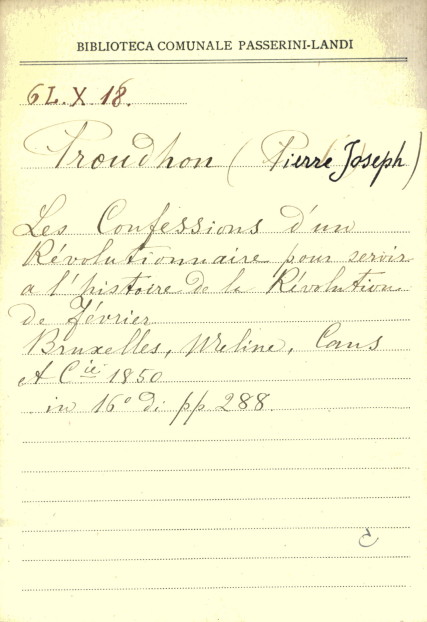 BIBLIOTECA COMUNALE PASSERINI-LANDI
6L.X.18.
Proudhon (Pierre Joseph)
Les Confessions d'un
Révolutionnaire pour servir
a l'histoire de la Révolution
de Février
Bruxelles, Meline, Cans
et Cie 1850
in 16° di pp 288.